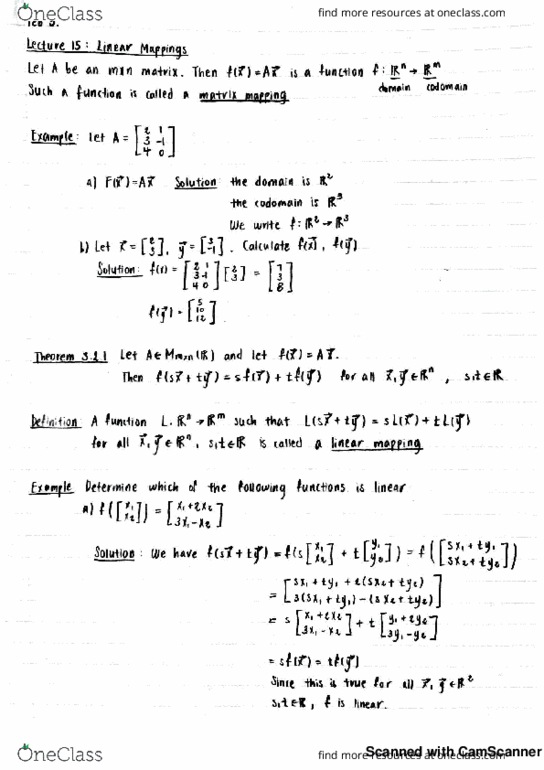 OneClass
find more resources at oneclass.com
Lecture 15: Linear Mappings
Let A be an mxn matrix. Then f(x⃗)=Ax⃗ is a function f: ℝⁿ → ℝᵐ
domain codomain
Such a function is called a matrix mapping
Example: let A = [2 1; 3 -1; 4 0]
a) F(x⃗)=Ax⃗ Solution: the domain is ℝ²
the codomain is ℝ³
We write f: ℝ² → ℝ³
b) Let x⃗ = [2; 3], y⃗ = [3; -1]. Calculate f(x⃗), f(y⃗)
Solution: f(x) = [2 1; 3 -1; 4 0] [2; 3] = [7; 3; 8]
f(y⃗) = [5; 10; 12]
Theorem 3.2.1 Let A∈Mm×n(ℝ) and let f(x⃗) = Ax⃗.
Then f(sx⃗ + ty⃗) = sf(x⃗) + tf(y⃗) for all x⃗, y⃗ ∈ ℝⁿ, s,t∈ℝ
Definition: A function L: ℝⁿ → ℝᵐ such that L(sx⃗ + ty⃗) = sL(x⃗) + tL(y⃗)
for all x⃗, y⃗ ∈ ℝⁿ, s,t∈ℝ is called a linear mapping
Example Determine which of the following functions is linear
a) f([x₁; x₂]) = [x₁ + 2x₂; 3x₁ - x₂]
Solution: We have f(sx⃗ + ty⃗) = f(s[x₁; x₂] + t[y₁; y₂]) = f([sx₁ + ty₁; sx₂ + ty₂])
= [sx₁ + ty₁ + 2(sx₂ + ty₂); 3(sx₁ + ty₁) - (sx₂ + ty₂)]
= s[x₁ + 2x₂; 3x₁ - x₂] + t[y₁ + 2y₂; 3y₁ - y₂]
= sf(x⃗) = tf(y⃗)
Since this is true for all x⃗, y⃗ ∈ ℝ²
s,t∈ℝ, f is linear.
OneClass
find more resources at oneclass.com
Scanned with CamScanner